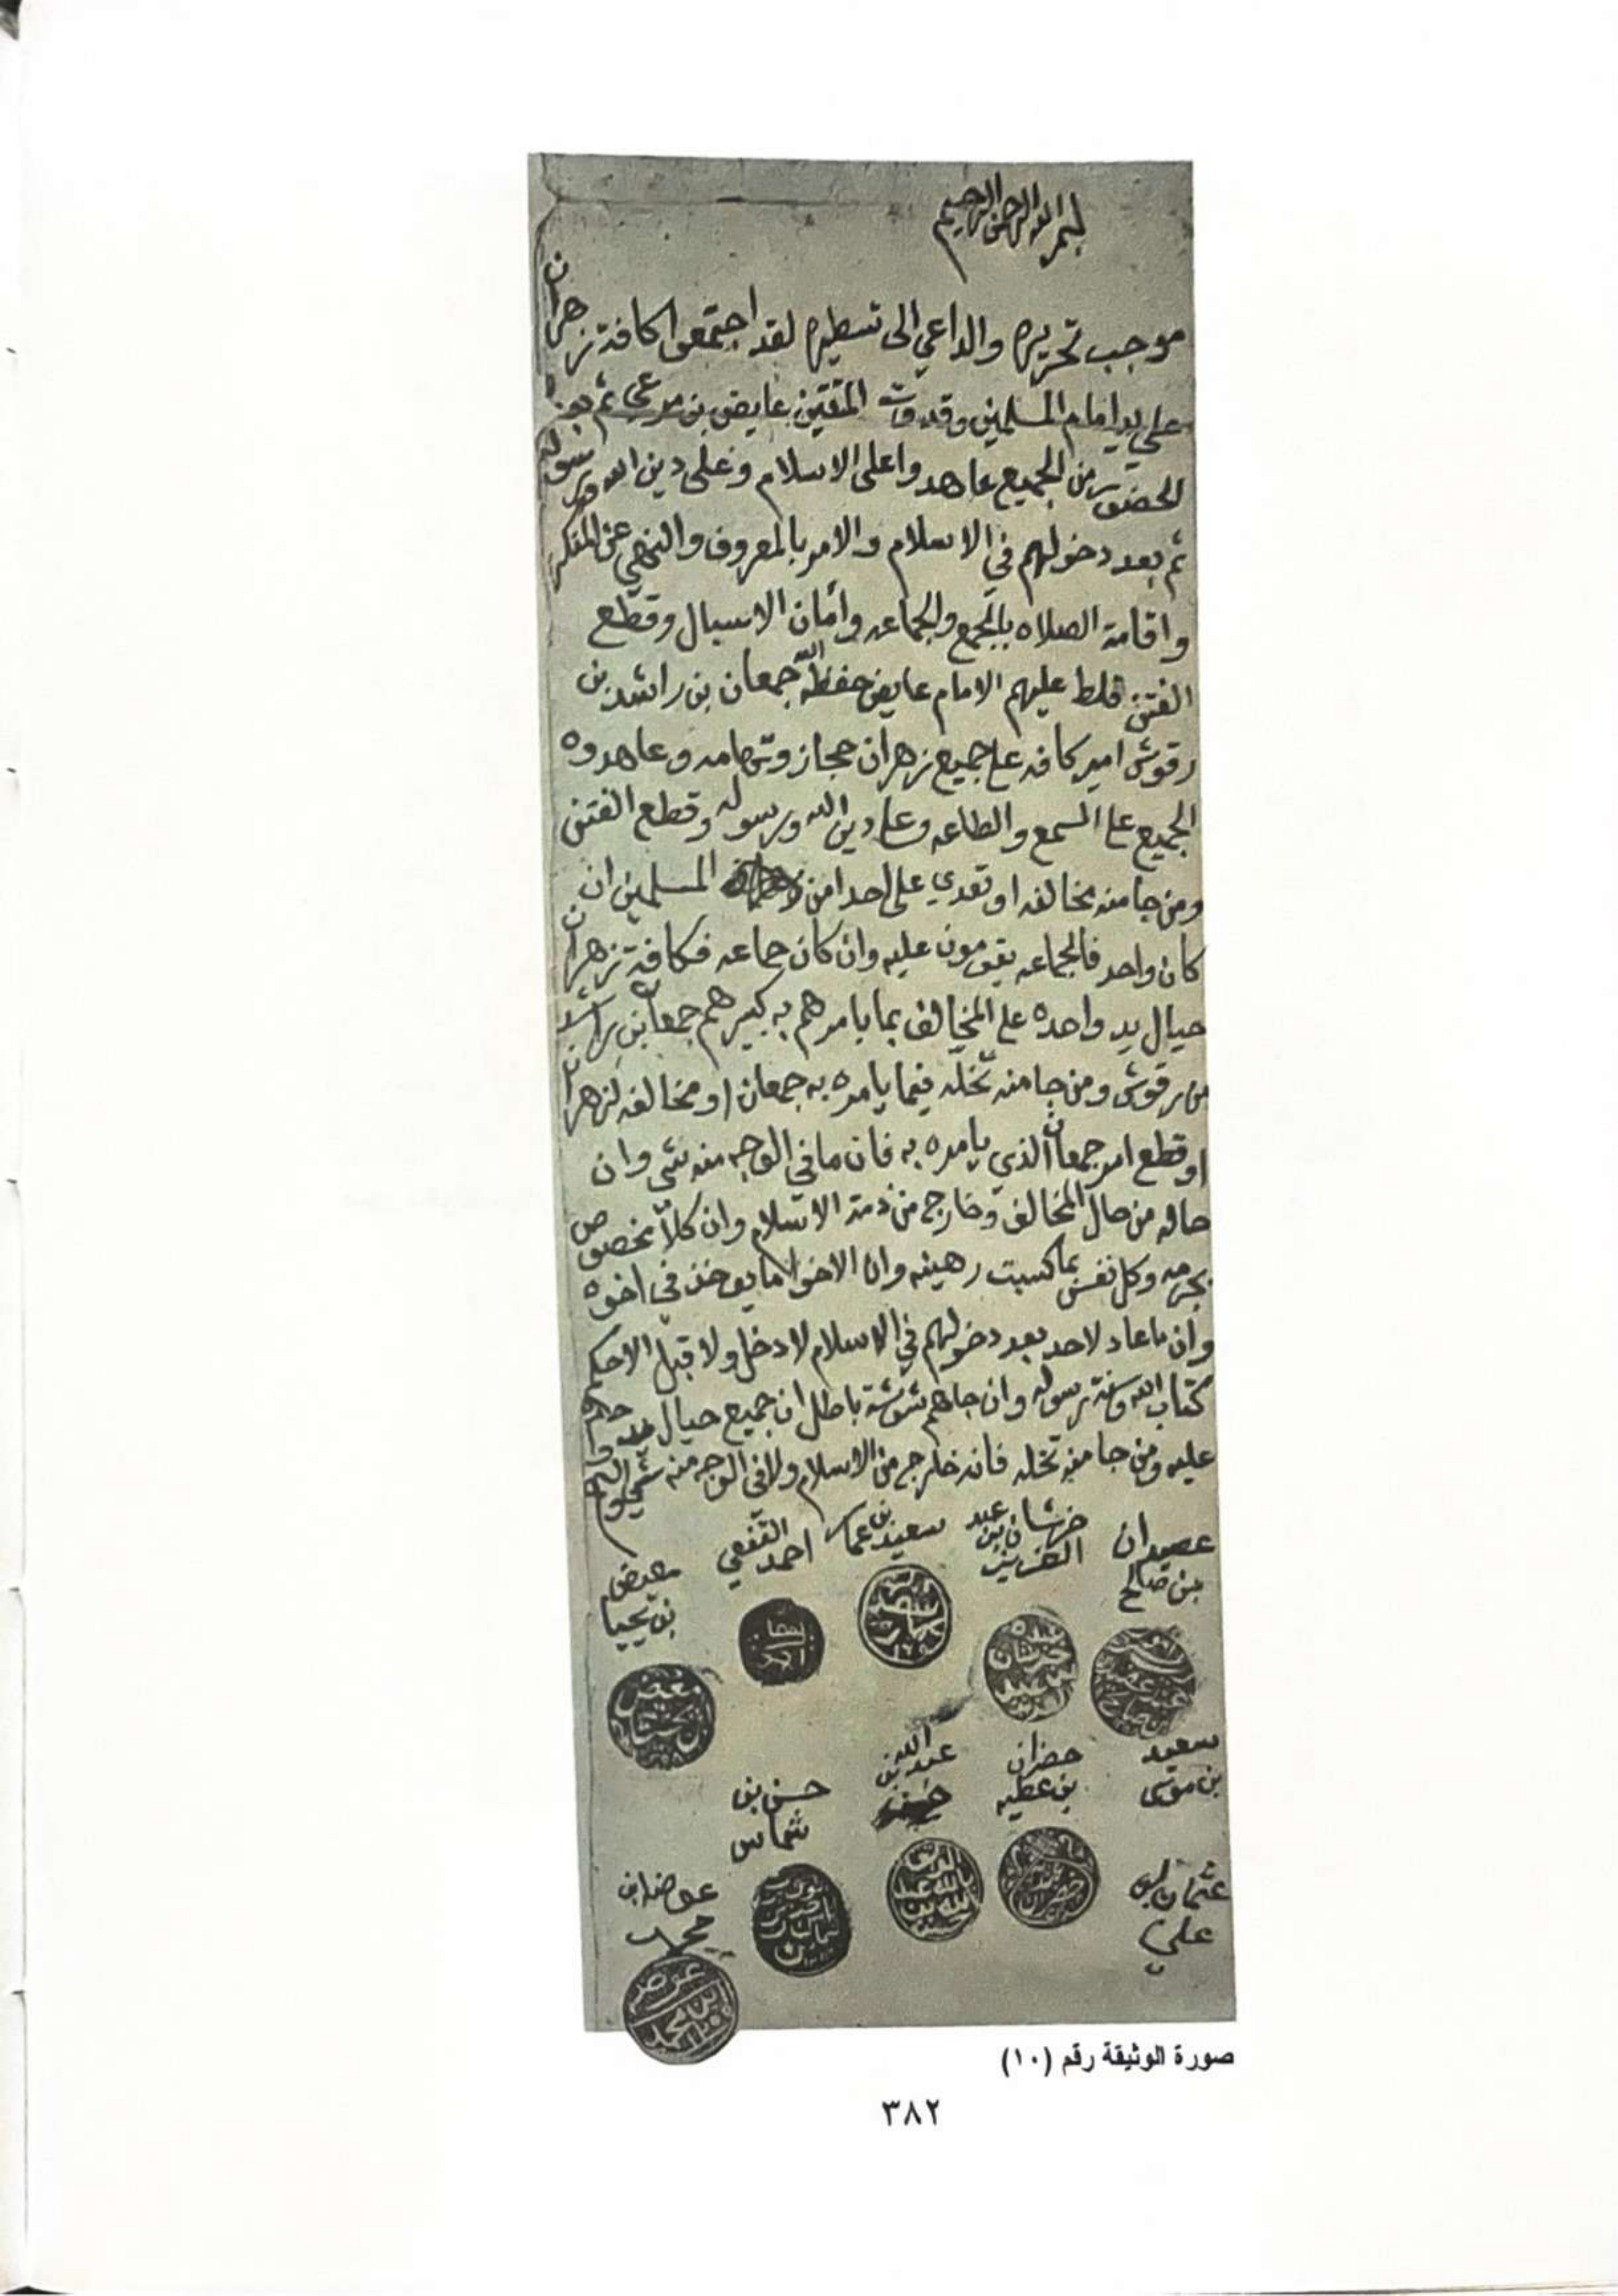 بسم الله الرحمن الرحيم
موجب تحريره والداعي الى تسطيره لقد اجتمعوا كافة زهران
على يد امام المسلمين وقدوة المتقين عايض بن مرعي ثم بعد
الحضور من الجميع عاهدوا على الاسلام وعلى دين الله ورسوله
ثم بعد دخولهم في الاسلام والامر بالمعروف والنهي عن المنكر
واقامة الصلاه بالجمع والجماعه وأمان الاسبال وقطع
الفتن قلط عليهم الامام عايض حفظه الله جمعان بن راشد بن
رقوش امير كافه على جميع زهران حجاز وتهامه وعاهدوه
الجميع على السمع والطاعه وعلى دين الله ورسوله وقطع الفتن
ومن جا منه مخالفه او تعدي على احدا من المسلمين ان
كان واحد فالجماعه يقومون عليه وان كان جماعه فكافة زهران
حيال يد واحده على المخالف بما يامرهم به كبيرهم جمعان بن راشد
بن رقوش ومن جا منه تخله فيما يامره به جمعان او مخالفه لزهران
او قطع امر جمعان الذي يامره به فان ما في الوجه منه شي وان
حاله من حال المخالف وخارج من ذمة الاسلام وان كلاً مخصوص
بجرمه وكل نفس بما كسبت رهينه وان الاخوا ما يوخذ في اخوه
وان ما عاد لاحد بعد دخولهم في الاسلام لا دخل ولا قبل الا حكم
كتاب الله وسنة رسوله وان جاهم شوشة باطل ان جميع حيال
عليه ومن جا منه تخله فانه خارج من الاسلام ولا في الوجه منه شي
عصيدان بن صالح
خرشان بن عبد العزيز
سعيد بن عماس
احمد القنفعي
معيض بن يحيا
سعيد بن موسى
حضران بن عطيه
عبد الله بن
حسن بن شماس
عثمان بن علي
عوضه ابن
صورة الوثيقة رقم (١٠)
٣٨٢